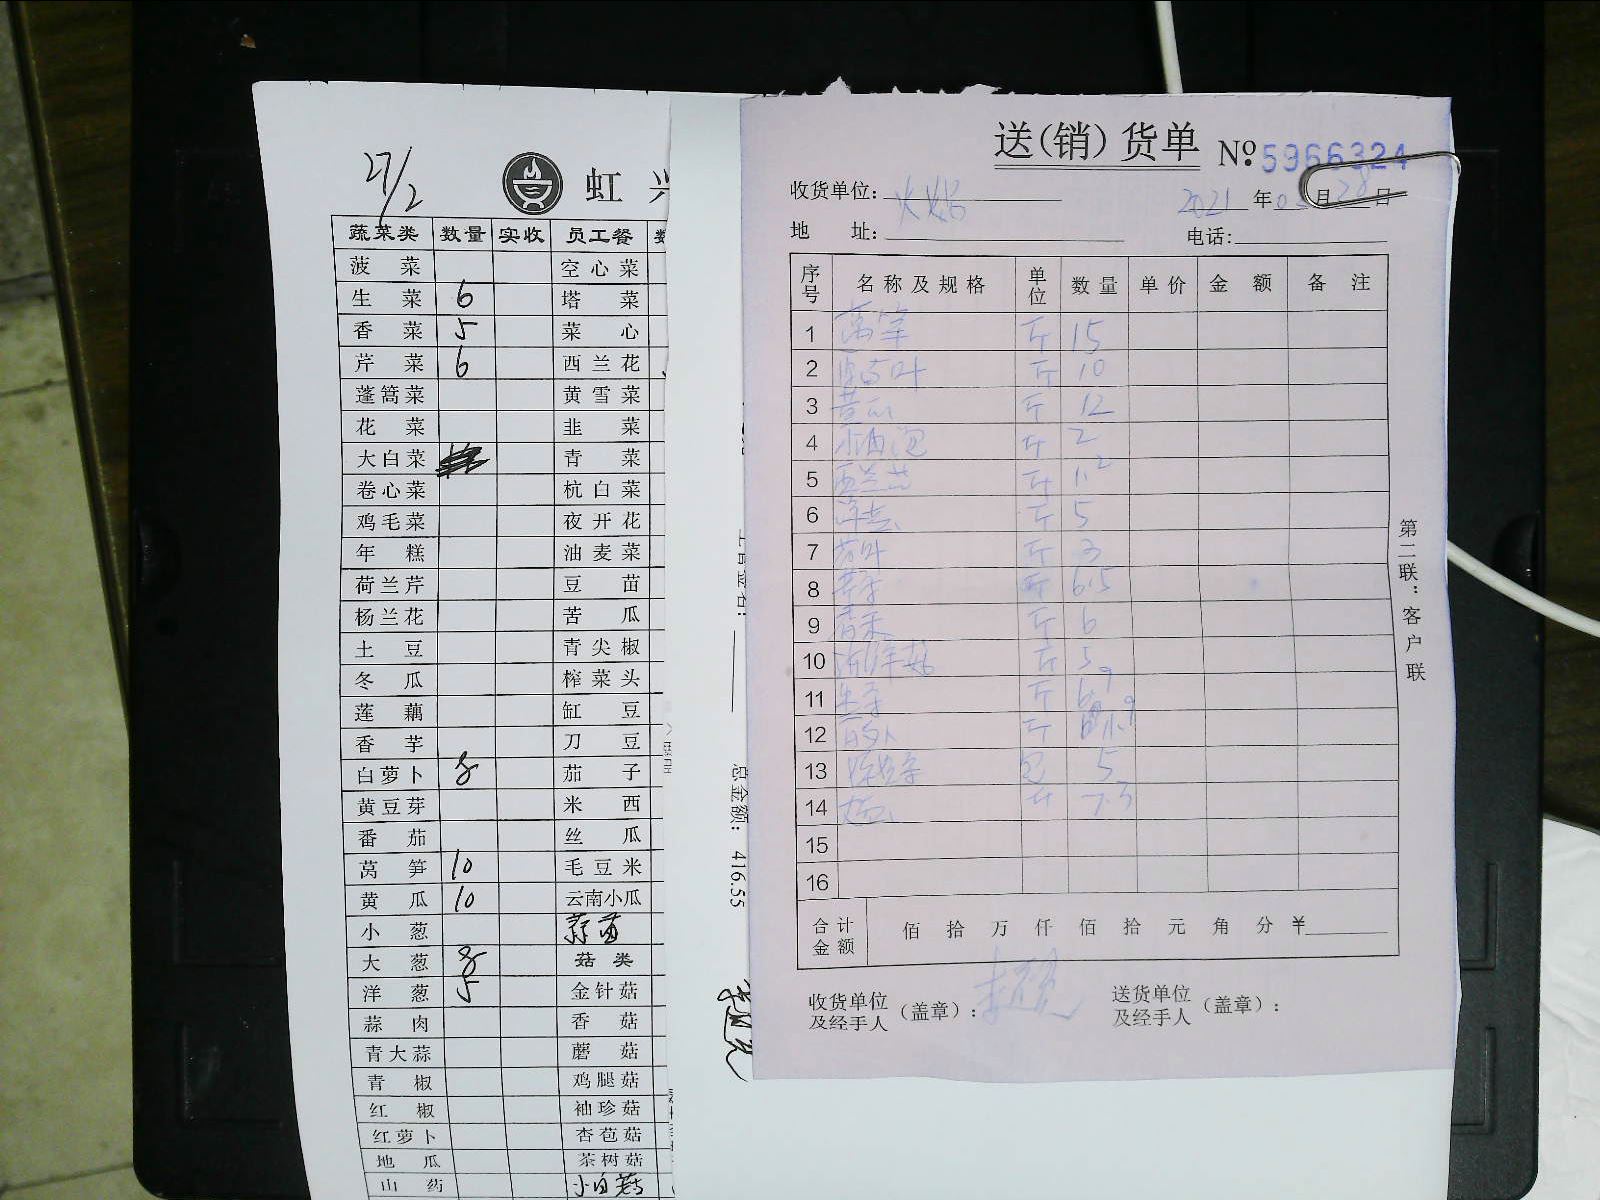 27/2
虹 兴
蔬菜类 数量 实收 员工餐 数
菠菜 空心菜
生菜 6 塔菜
香菜 5 菜心
芹菜 6 西兰花
蓬蒿菜 黄雪菜
花菜 韭菜
大白菜 青菜
卷心菜 杭白菜
鸡毛菜 夜开花
年糕 油麦菜
荷兰芹 豆苗
杨兰花 苦瓜
土豆 青尖椒
冬瓜 榨菜头
莲藕 缸豆
香芋 刀豆
白萝卜 8 茄子
黄豆芽 米西
番茄 丝瓜
莴笋 10 毛豆米
黄瓜 10 云南小瓜
小葱 蒜苗
大葱 8 菇类
洋葱 5 金针菇
蒜肉 香菇
青大蒜 蘑菇
青椒 鸡腿菇
红椒 袖珍菇
红萝卜 杏苞菇
地瓜 茶树菇
山药 小白菇
总金额: 416.55
送(销)货单 № 5966324
收货单位: 2021 年 月 28 日
地址: 电话:
序号 名称及规格 单位 数量 单价 金额 备注
1 莴笋 斤 15
2 斤 10
3 黄瓜 斤 12
4 小油泡 斤 2
5 西兰花 斤
6 洋葱 斤 5
7 斤 3
8 斤 6.5
9 香菜 斤 6
10 斤
11 生子 斤
12 斤
13 包 5
14 斤 7.3
15
16
合计金额 佰 拾 万 仟 佰 拾 元 角 分 ¥
收货单位及经手人(盖章): 送货单位及经手人(盖章):
第二联:客户联